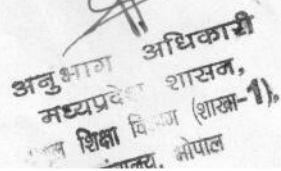 अनुभाग अधिकारी
मध्यप्रदेश शासन,
शिक्षा विभाग (शाखा-1),
मंत्रालय, भोपाल